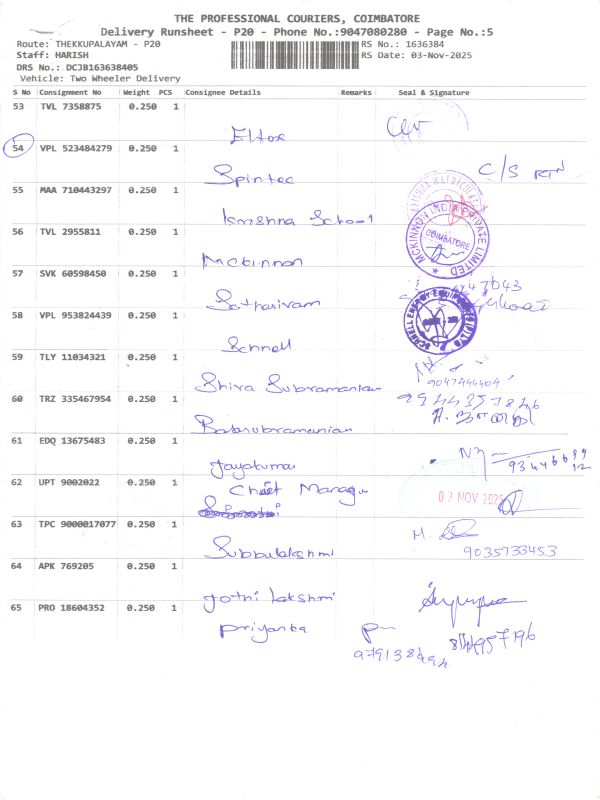 THE PROFESSIONAL COURIERS, COIMBATORE
Delivery Runsheet - P20 - Phone No.:9047080280 - Page No.:5
Route: THEKKUPALAYAM - P20 RS No.: 1636384
Staff: HARISH RS Date: 03-Nov-2025
DRS No.: DCJB163638405
Vehicle: Two Wheeler Delivery
S No Consignment No Weight PCS Consignee Details Remarks Seal & Signature
53 TVL 7358875 0.250 1
Eltex
54 VPL 523484279 0.250 1
Spintec C/S RTN
55 MAA 710443297 0.250 1
Krishna School
56 TVL 2955811 0.250 1
Mckinnon
MCKINNON INDIA PRIVATE LIMITED
COIMBATORE
57 SVK 60598450 0.250 1
Sathasivam
58 VPL 953824439 0.250 1
Schnell
59 TLY 11034321 0.250 1
Shiva Subramaniam
9047444404
60 TRZ 335467954 0.250 1
Balasubramanian
61 EDQ 13675483 0.250 1
Jayakumar
62 UPT 9002022 0.250 1
Chief Manager
03 NOV 2025
63 TPC 9000017077 0.250 1
Subbulakshmi
9035733453
64 APK 769205 0.250 1
Jothi Lakshmi
65 PRO 18604352 0.250 1
Priyanka